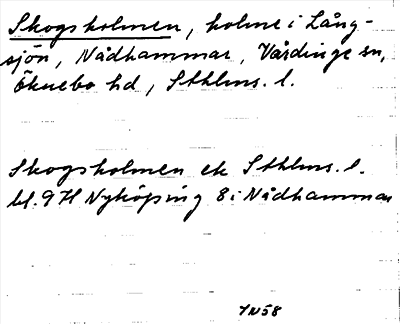 Skogsholmen, holme i Lång-
sjön, Nådhammar, Vårdinge sn,
Öknebo hd, Sthlms. l.
Skogsholmen ek Sthlms. l.
bl. 9 H Nyköping 8 i Nådhammar
7N58